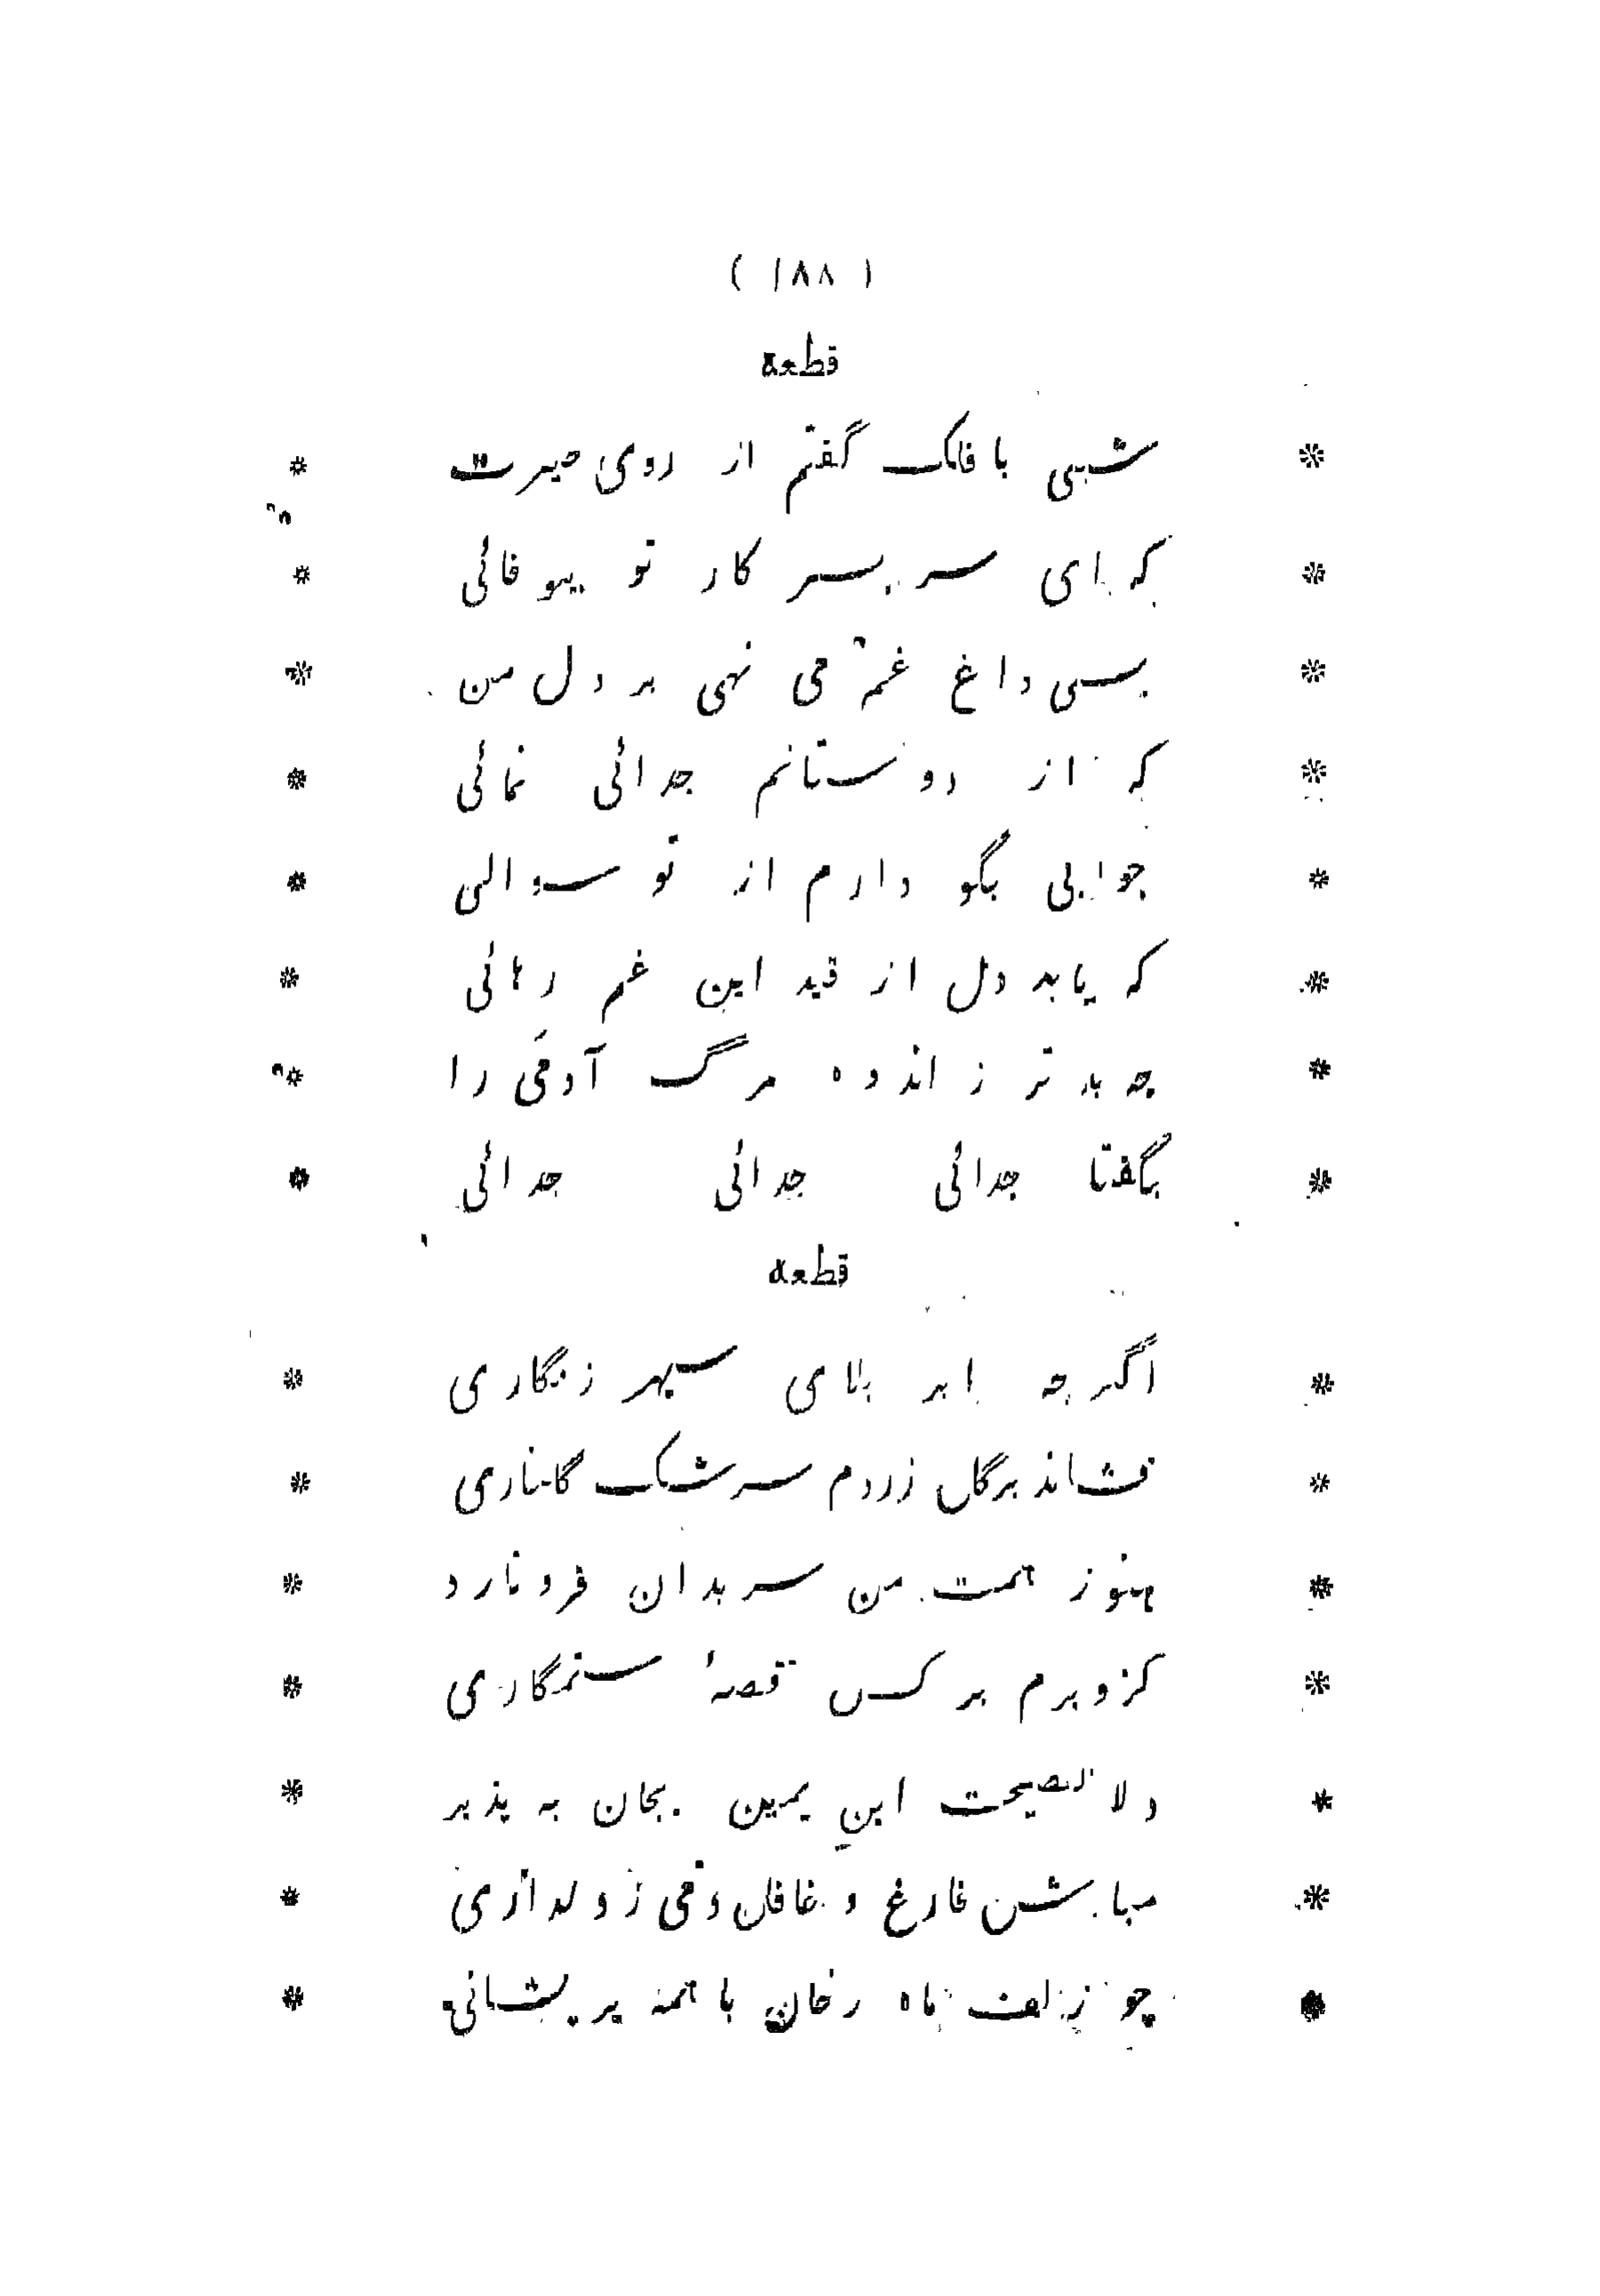 ( ۱۸۸ )
قطعه
* شبی با فلک گفتم از روی حیرت *
* که ای سر بسر کار تو بیوفائی *
* بسی داغ غم می نهی بر دل من *
* که از دوستانم جدائی نمائی *
* جوابی بگو دارم از تو سوالی *
* که یابد دل از قید این غم رهائی *
* چه بدتر ز اندوه مرگ آدمی را *
* بگفتا جدائی جدائی جدائی *
قطعه
* اگرچه ابر بلای سپهر زنگاری *
* فشاند برگل زردم سرشک گلناری *
* هنوز همت من سر بدان فرو نارد *
* کزو برم بر کس قصهٔ ستمگاری *
* دلا نصیحت ابن یمین بجان به پذیر *
* مباش فارغ و غافل دمی ز دلداری *
* چو زلف ماه رخان با همه پریشانی *